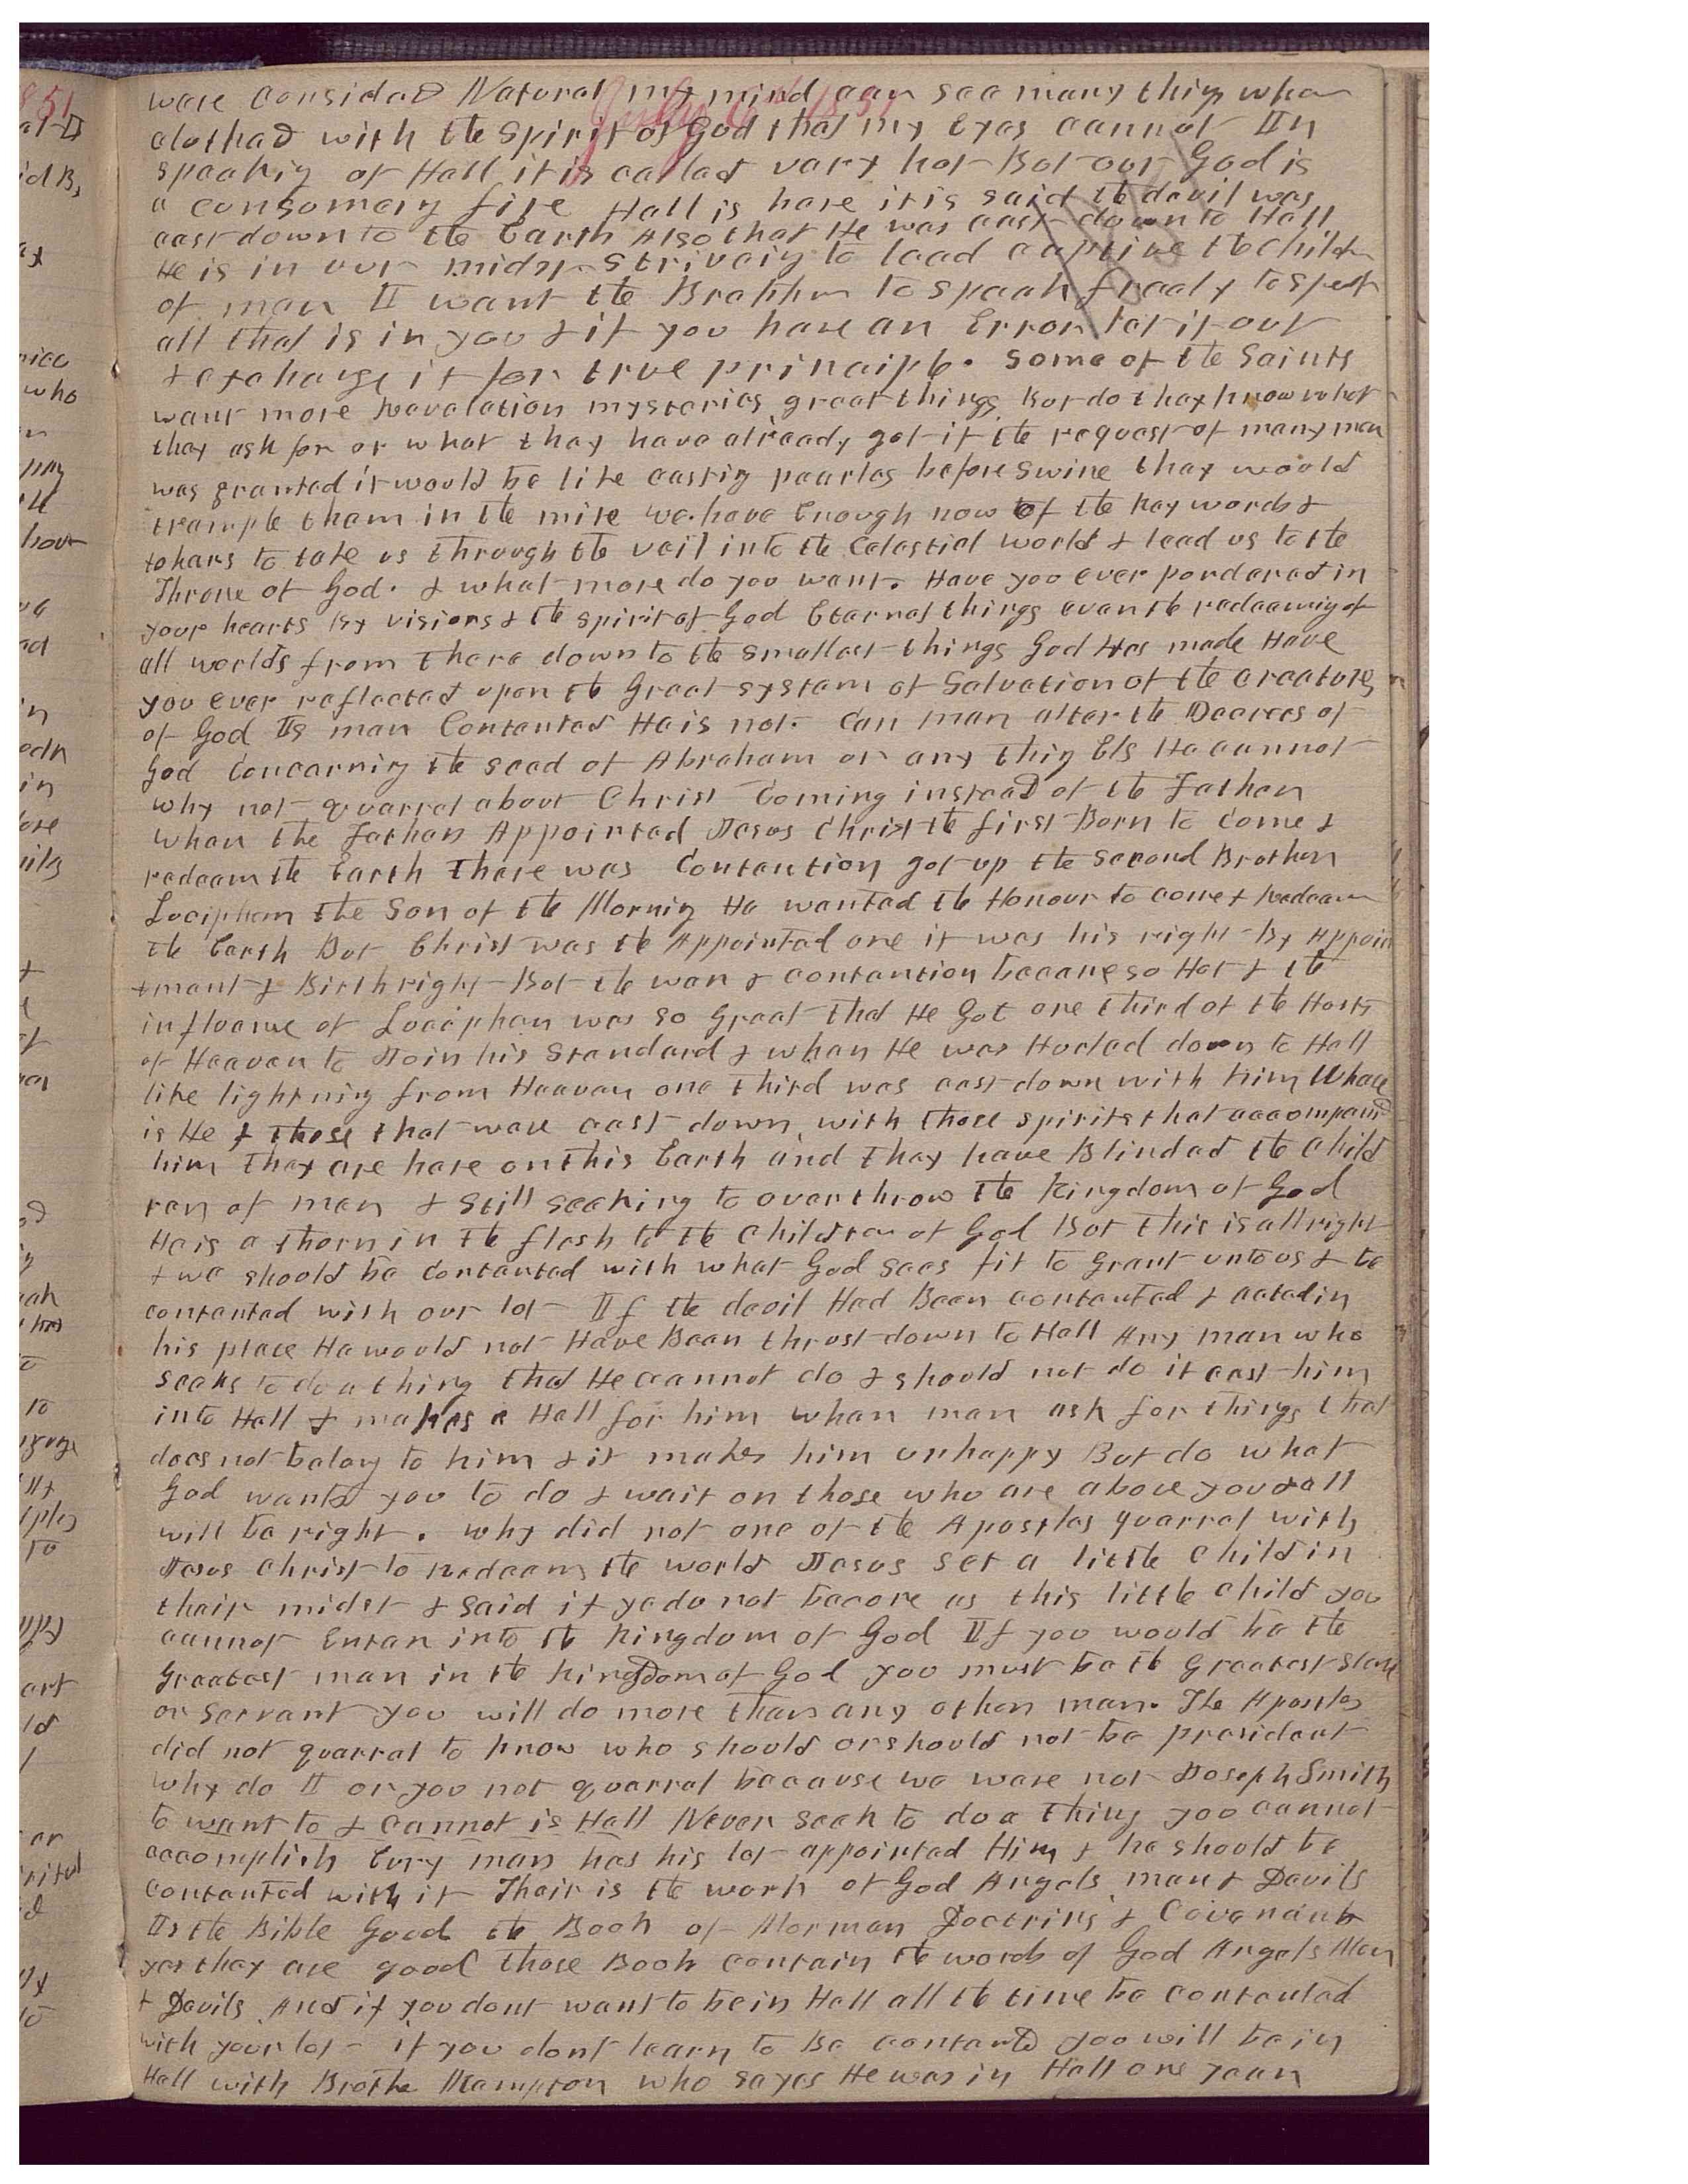 were considered Natural my mind can see many things when
clothed with the spirit of God that my Eyes cannot In
speaking of Hell it is called very hot But our God is
a consumeing fire Hell is here it is said the devil was
cast down to the Earth Also that He was cast down to Hell
He is in our midst striveing to lead captive the Children
of men I want the Brethren to speak freely to speak
all that is in you & if you have an Error let it out
& exchange it for true principle. Some of the Saints
want more Revelation mysteries great things But do they know what
they ask for or what they have already got if the request of many men
was granted it would be like casting pearles before swine they would
trample them in the mire we have Enough now of the key words &
tokens to take us through the veil into the Celestial world & lead us to the
Throne of God. & what more do you want. Have you ever pondered in
your hearts by visions & the spirit of God Eternal things even the redeeming of
all worlds from there down to the smallest things God Has made Have
you ever reflected upon the Great system of Salvation of the creatures
of God Is man Contented He is not. Can man alter the Decrees of
God Concerning the seed of Abraham or any thing Els He cannot
why not quarrel about Christ Coming instead of the Father
when the Father Appointed Jesus Christ the first Born to Come &
redeem the Earth there was Contention got up the second Brother
Luciphere the Son of the Morning He wanted the Honour to come & redeem
the Earth But Christ was the Appointed one it was his right By Appoin
tment & Birthright But the war & contention became so Hot & the
influence of Lucipher was so Great that He Got one third of the Hosts
of Heaven to Join his Standard & when He was Hurled down to Hell
like lightning from Heaven one third was cast down with him Whare
is He & those that ware cast down with those spirits that accompanied
him they are here on this Earth and they have Blinded the Child
ren of men & still seeking to overthrow the Kingdom of God
He is a thorn in the flesh to the Children of God But this is all right
& we should be Contented with what God sees fit to Grant unto us & be
contented with our lot If the devil Had Been contented & acted in
his place He would not Have Been thrust down to Hell Any man who
seeks to do a thing that He cannot do & should not do it cast him
into Hell & makes a Hell for him when man ask for things that
does not belong to him & it makes him unhappy But do what
God wants you to do & wait on those who are above you & all
will be right. why did not one of the Apostles quarrel with
Jesus Christ to redeem the world Jesus set a little Child in
their midst & said if ye do not become as this little child you
cannot Enter into the Kingdom of God If you would be the
Greatest man in the kingdom of God you must be the Greatest slave
or Servant you will do more than any other man. The Apostles
did not quarrel to know who should or should not be president
why do I or you not quarrel because we ware not Joseph Smith
to want to & cannot is Hell Never seek to do a thing you cannot
accomplish Evry man has his lot appointed Him & he should be
contented with it Their is the work of God Angels men & Devils
Is the Bible Good the Book of Mormon Doctrins & Covenants
yes they are good those Book contain the words of God Angels Men
& Devils. And if you dont want to be in Hell all the time be contented
with your lot - if you dont learn to Be contented you will be in
Hell with Brothe Kempton who sayes He was in Hell one year